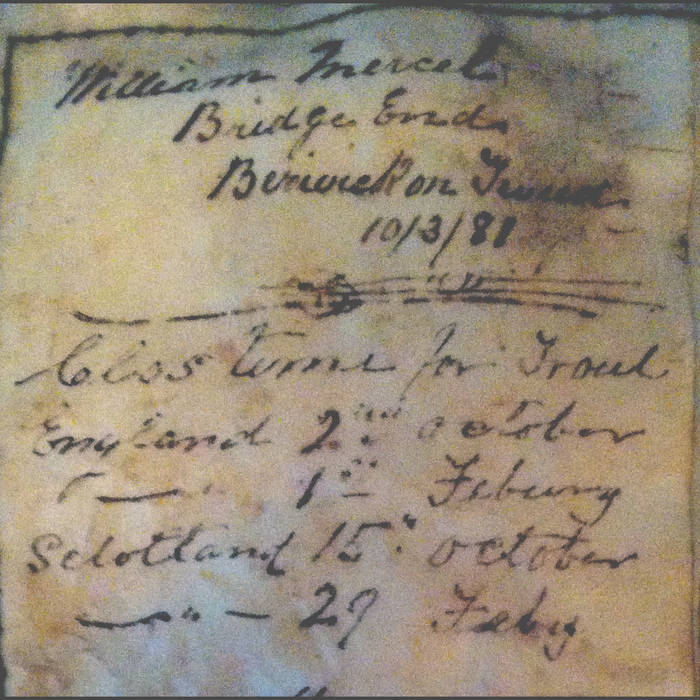 William Mercel
Bridge End
Berwick on Tweed
10/3/81
Clos time for Trout
England 2nd october
" — " 1st Febuary
Sclottland 15" october
— " — 29 Feby